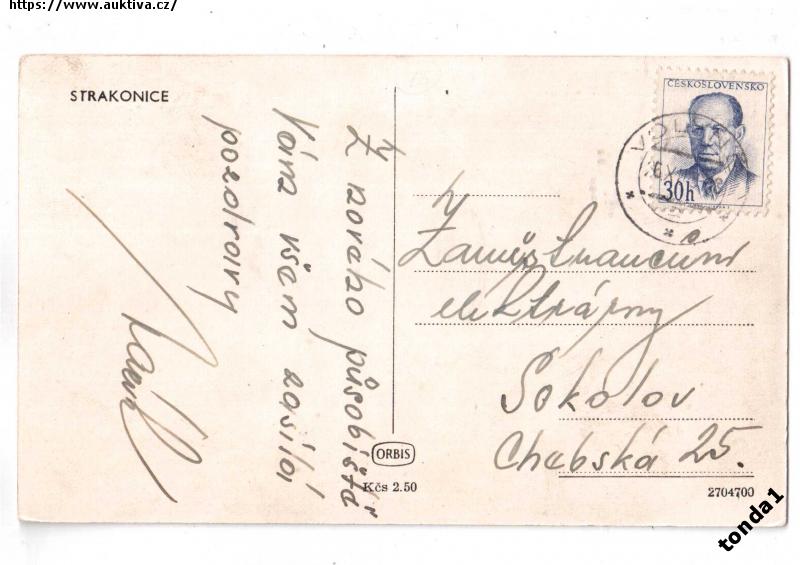 https://www.auktiva.cz/
STRAKONICE
Z nového působiště
Vám všem zasílá
pozdravy
ČESKOSLOVENSKO
30h
Zaměstnancům
elektrárny
Sokolov
Chebská 25.
ORBIS
Kčs 2.50
2704700
tonda1